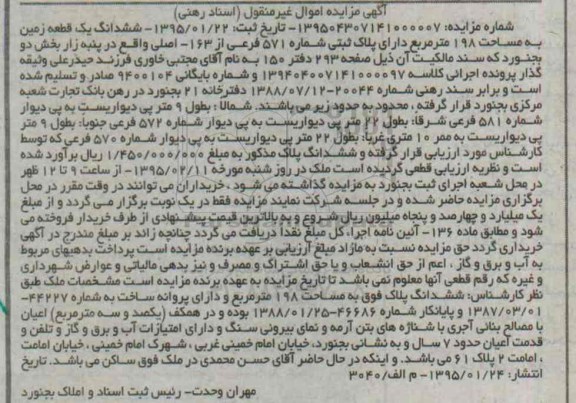 آگهی مزایده اموال غیرمنقول (اسناد رهنی)
شماره مزایده: ۱۳۹۵۰۴۳۰۷۱۴۱۰۰۰۰۰۷- تاریخ ثبت: ۱۳۹۵/۰۱/۲۲- ششدانگ یک قطعه زمین
به مساحت ۱۹۸ مترمربع دارای پلاک ثبتی شماره ۵۷۱ فرعی از ۱۶۳- اصلی واقع در پنبه زار بخش دو
بجنورد که سند مالکیت آن ذیل صفحه ۲۹۳ دفتر ۱۵۰ به نام آقای مجتبی خاوری فرزند حیدرعلی وثیقه
گذار پرونده اجرائی کلاسه ۱۳۹۴۰۴۰۰۷۱۴۱۰۰۰۰۹۷ و شماره بایگانی ۹۴۰۰۱۰۴ صادر و تسلیم شده
است و برابر سند رهنی شماره ۲۰۰۴۴-۱۳۸۸/۰۷/۱۲ دفترخانه ۲۱ بجنورد در رهن بانک تجارت شعبه
مرکزی بجنورد قرار گرفته، محدود به حدود زیر می باشند. شمالا: بطول ۹ متر پی دیواریست به پی دیوار
شماره ۵۸۱ فرعی شرقا: بطول ۲۲ متر پی دیواریست به پی دیوار شماره ۵۷۲ فرعی جنوبا: بطول ۹ متر
پی دیواریست به ممر ۱۰ متری غربا: بطول ۲۲ متر پی دیواریست به پی دیوار شماره ۵۷۰ فرعی که توسط
کارشناس مورد ارزیابی قرار گرفته و ششدانگ پلاک مذکور به مبلغ ۱/۴۵۰/۰۰۰/۰۰۰ ریال برآورد شده
است و نظریه ارزیابی قطعی گردیده است ملک در روز شنبه مورخه ۱۳۹۵/۰۲/۱۱- از ساعت ۹ تا ۱۲ ظهر
در محل شعبه اجرای ثبت بجنورد به مزایده گذاشته می شود، خریداران می توانند در وقت مقرر در محل
برگزاری مزایده حاضر شده و در جلسه شرکت نمایند مزایده فقط در یک نوبت برگزار می گردد و از مبلغ
یک میلیارد و چهارصد و پنجاه میلیون ریال شروع و به بالاترین قیمت پیشنهادی از طرف خریدار فروخته می
شود و مطابق ماده ۱۳۶- آئین نامه اجرا، کل مبلغ نقدا دریافت می گردد چنانچه زائد بر مبلغ مندرج در آگهی
خریداری گردد حق مزایده نسبت به مازاد مبلغ ارزیابی بر عهده برنده مزایده است پرداخت بدهیهای مربوط
به آب و برق و گاز، اعم از حق انشعاب و یا حق اشتراک و مصرف و نیز بدهی مالیاتی و عوارض شهرداری
و غیره که رقم قطعی آنها معلوم نمی باشد تا تاریخ مزایده به عهده برنده مزایده است مشخصات ملک طبق
نظر کارشناس: ششدانگ پلاک فوق به مساحت ۱۹۸ مترمربع و دارای پروانه ساخت به شماره ۴۴۲۲۷-
۱۳۸۷/۰۳/۰۱ و پایانکار شماره ۴۶۶۸۶-۱۳۸۸/۰۱/۲۵ بوده و در همکف (یکصد و سه مترمربع) اعیان
با مصالح بنائی آجری با شناژ های بتن آرمه و نمای بیرونی سنگ و دارای امتیازات آب و برق و گاز و تلفن و
قدمت اعیان حدود ۷ سال و به نشانی بجنورد، خیابان امام خمینی غربی، شهرک امام خمینی، خیابان امامت
، امامت ۲ پلاک ۶۱ می باشد. و اینکه در حال حاضر آقای حسن محمدی در ملک فوق ساکن می باشد. تاریخ
انتشار: ۱۳۹۵/۰۱/۲۴- م الف/۳۰۴۰
مهران وحدت- رئیس ثبت اسناد و املاک بجنورد